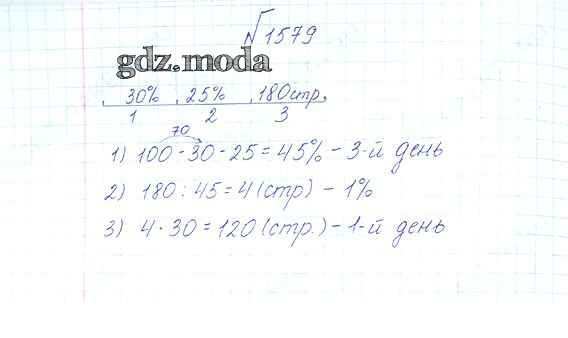 №1579
gdz.moda
30% 25% 180стр.
1 2 3
70
1) 100-30-25=45% - 3-й день
2) 180:45=4(стр) - 1%
3) 4·30=120(стр.) - 1-й день